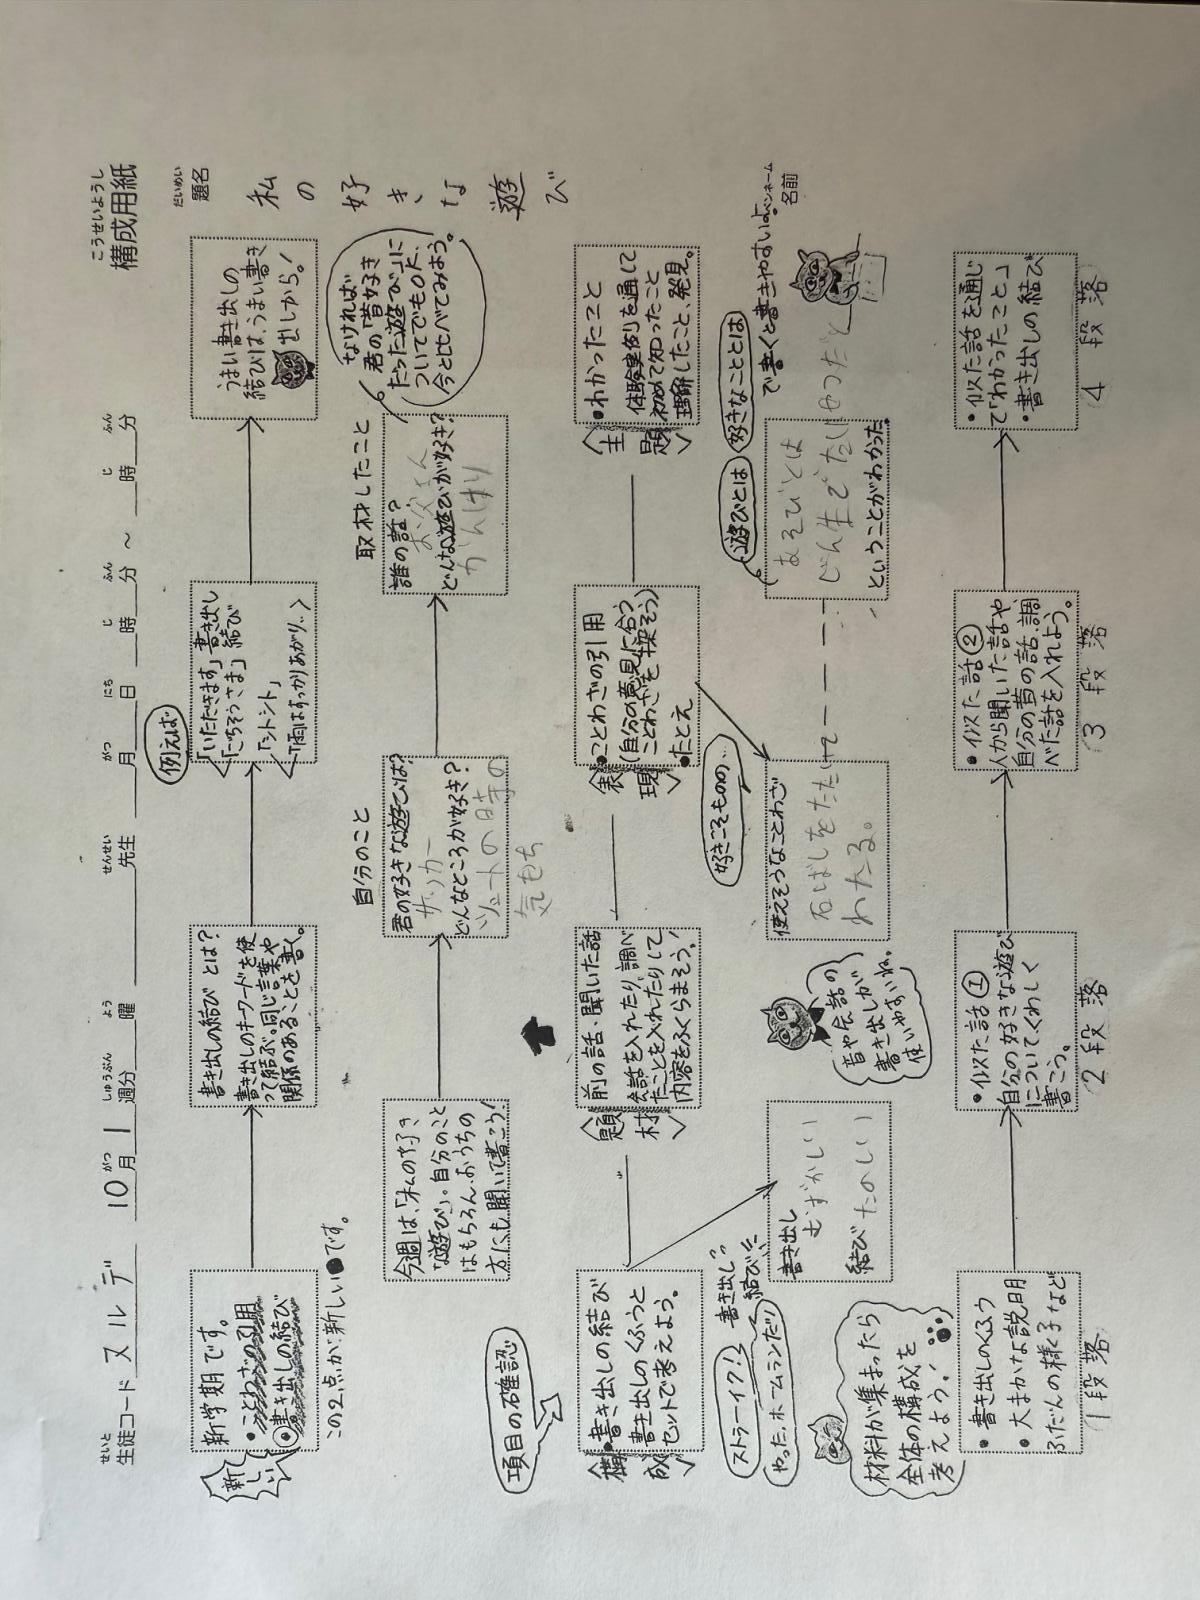 こうせいようし
構成用紙
せいと
生徒コード ヌ ル デ 10月 1 週分 曜 先生 月 日 時 分 ～ 時 分
がつ しゅうぶん よう せんせい がつ にち じ ふん じ ふん
だいめい
題名
私の好きな遊び
ペンネーム
名前
新しい
新学期です。
・ことわざの引用
◉書き出しの結び
この2点が新しい●です。
書き出しの結びとは?
書き出しのキーワードを使
って結ぶ。同じ言葉や
関係のあることを書く。
例えば
「いただきます」書き出し
「ごちそうさま」結び
「シトシト」
「雨はすっかりあがり‥
うまい書き出しの
結びは、うまい書き
出しから。!
今週は、「私の好き
な遊び」。自分のこと
はもちろん、おうちの
方にも聞いて書こう!
自分のこと
君の好きな遊びは?
サッカー
どんなところが好き?
シュートの時の
気もち
取材したこと
誰の話?
お父さん
どんな遊びが好き?
なければ
君の「昔好き
だった遊び」に
ついてでもOK、
今と比べてみよう。
項目の確認
〈構成〉
・書き出しの結び
書き出しのくふうと
セットで考えよう。
〈題材〉
前の話・聞いた話
会話を入れたり、調べ
たことを入れたりして
内容をふくらまそう!
〈表現〉
・ことわざの引用
(自分の意見に合う
ことわざを探そう)
・たとえ
〈主題〉
・わかったこと
体験実例を通して
初めて知ったこと
理解したこと、発見。
ストライク!!
書き出し
やった、ホームランだ!!
結び
書き出し
むずかしい
結び たのしい
音や会話の
書き出しが
使いやすいね。
好きこそものの…
使えそうなことわざ
石ばしをたたいて
わたる。
遊びとは
好きなこととは
で書くと書きやすいよ。
あそびとは
じん生で
ということがわかった。
材料が集まったら
全体の構成を
考えよう!
・書き出しのくふう
・大まかな説明
ふだんの様子など
1段落
・似た話①
自分の好きな遊び
についてくわしく
書こう。
2段落
・似た話②
人から聞いた話や
自分の昔の話、調
べた話を入れよう。
3段落
・似た話を通じ
て「わかったこと」
・書き出しの結び
4段落